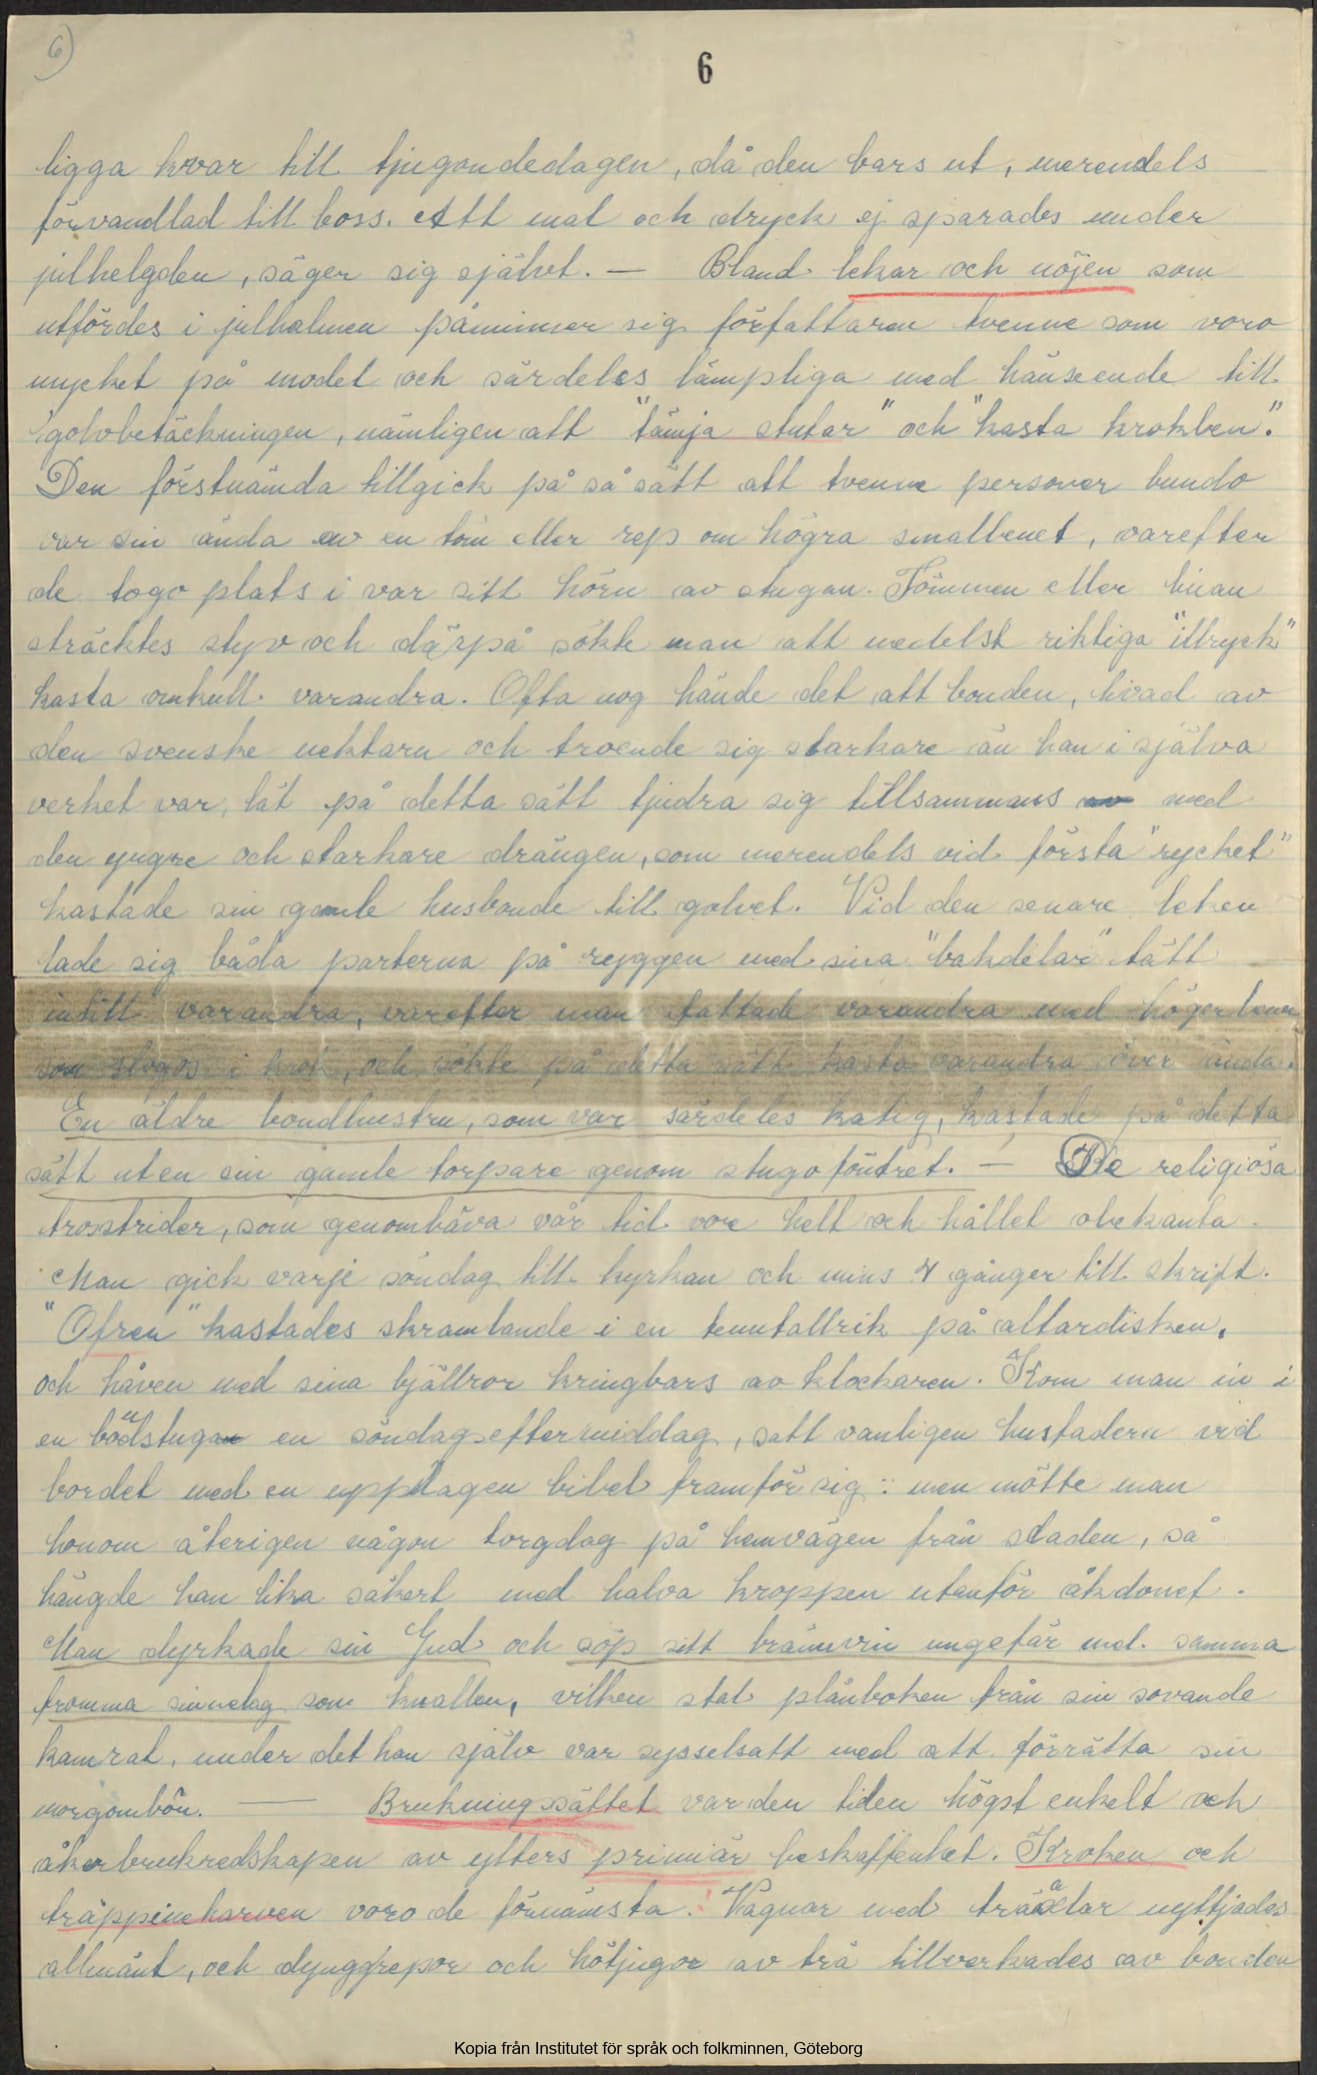 6)
6
ligga kvar till tjugondedagen, då den bars ut, merendels
förvandlad till boss. Att mat och dryck ej sparades under
julhelgden, säger sig självt. — Bland lekar och nöjen som
utfördes i julhalmen påminner sig författaren tvenne som voro
mycket på modet och särdeles lämpliga med hänseende till
golvbetäckningen, nämligen att "tämja stutar" och "kasta krokben".
Den förstnämda tillgick på så sätt att tvenne personer bundo
var sin ända av en töm eller rep om högra smalbenet, varefter
de togo plats i var sitt hörn av stugan. Tömmen eller linan
sträcktes styv och därpå sökte man att medelst riktiga "illryck"
kasta omkull varandra. Ofta nog hände det att bonden, livad av
den svenske nektarn och troende sig starkare än han i själva
verket var, lät på detta sätt tjudra sig tillsammans med
den yngre och starkare drängen, som merendels vid första "rycket"
kastade sin gamle husbonde till golvet. Vid den senare leken
lade sig båda parterna på ryggen med sina "bakdelar" tätt
intill varandra, varefter man fattade varandra med höger benen
som slogos i krok, och sökte på detta sätt kasta varandra över ända.
En äldre bondhustru, som var särdeles katig, kastade på detta
sätt uten sin gamle torpare genom stugoföntret. — De religiösa
trosstrider, som genombäva vår tid vore helt och hållet obekanta.
Man gick varje söndag till kyrkan och mins 4 gånger till skrift.
"Ofren" kastades skramlande i en tenntallrik på altardisken,
och håven med sina bjällror kringbars av klockaren. Kom man in i
en bondstuga en söndagseftermiddag, satt vanligen husfadern vid
bordet med en uppslagen bibel framför sig: men mötte man
honom återigen någon torgdag på hemvägen från staden, så
hängde han lika säkert med halva kroppen utanför åkdonet.
Man dyrkade sin Gud och söp sitt brännvin ungefär med samma
fromma sinnelag som knallen, vilken stal plånboken från sin sovande
kamrat, under det han själv var sysselsatt med att förrätta sin
morgonbön. — Brukningssättet var den tiden högst enkelt och
åkerbrukredskapen av ytters primiär beskaffenhet. Kroken och
träppineharven voro de förnämsta. Vagnar med träaxlar nyttjades
allmänt, och dynggrepor och hötjugor av trä tillverkades av bonden
Kopia från Institutet för språk och folkminnen, Göteborg